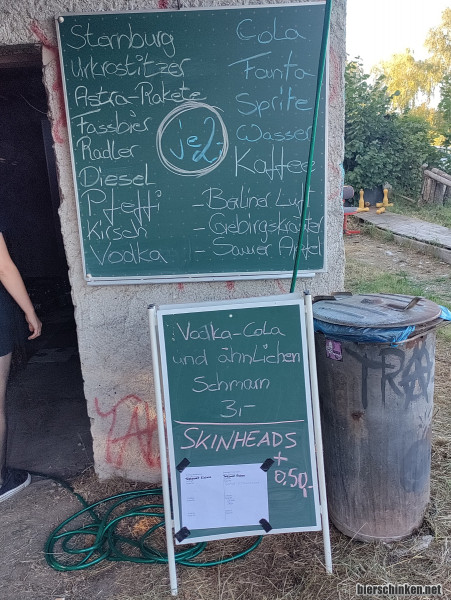 Sternburg
Urkrostitzer
Astra-Rakete
Fassbier
Radler
Diesel
Pfeffi
Kirsch
Vodka
Cola
Fanta
Sprite
Wasser
Kaffee
je 2,-
- Berliner Luft
- Gebirgskräuter
- Saurer Apfel
Vodka-Cola
und ähnlichen
Schmarn
3,-
SKINHEADS
+
0,50,-
bierschinken.net